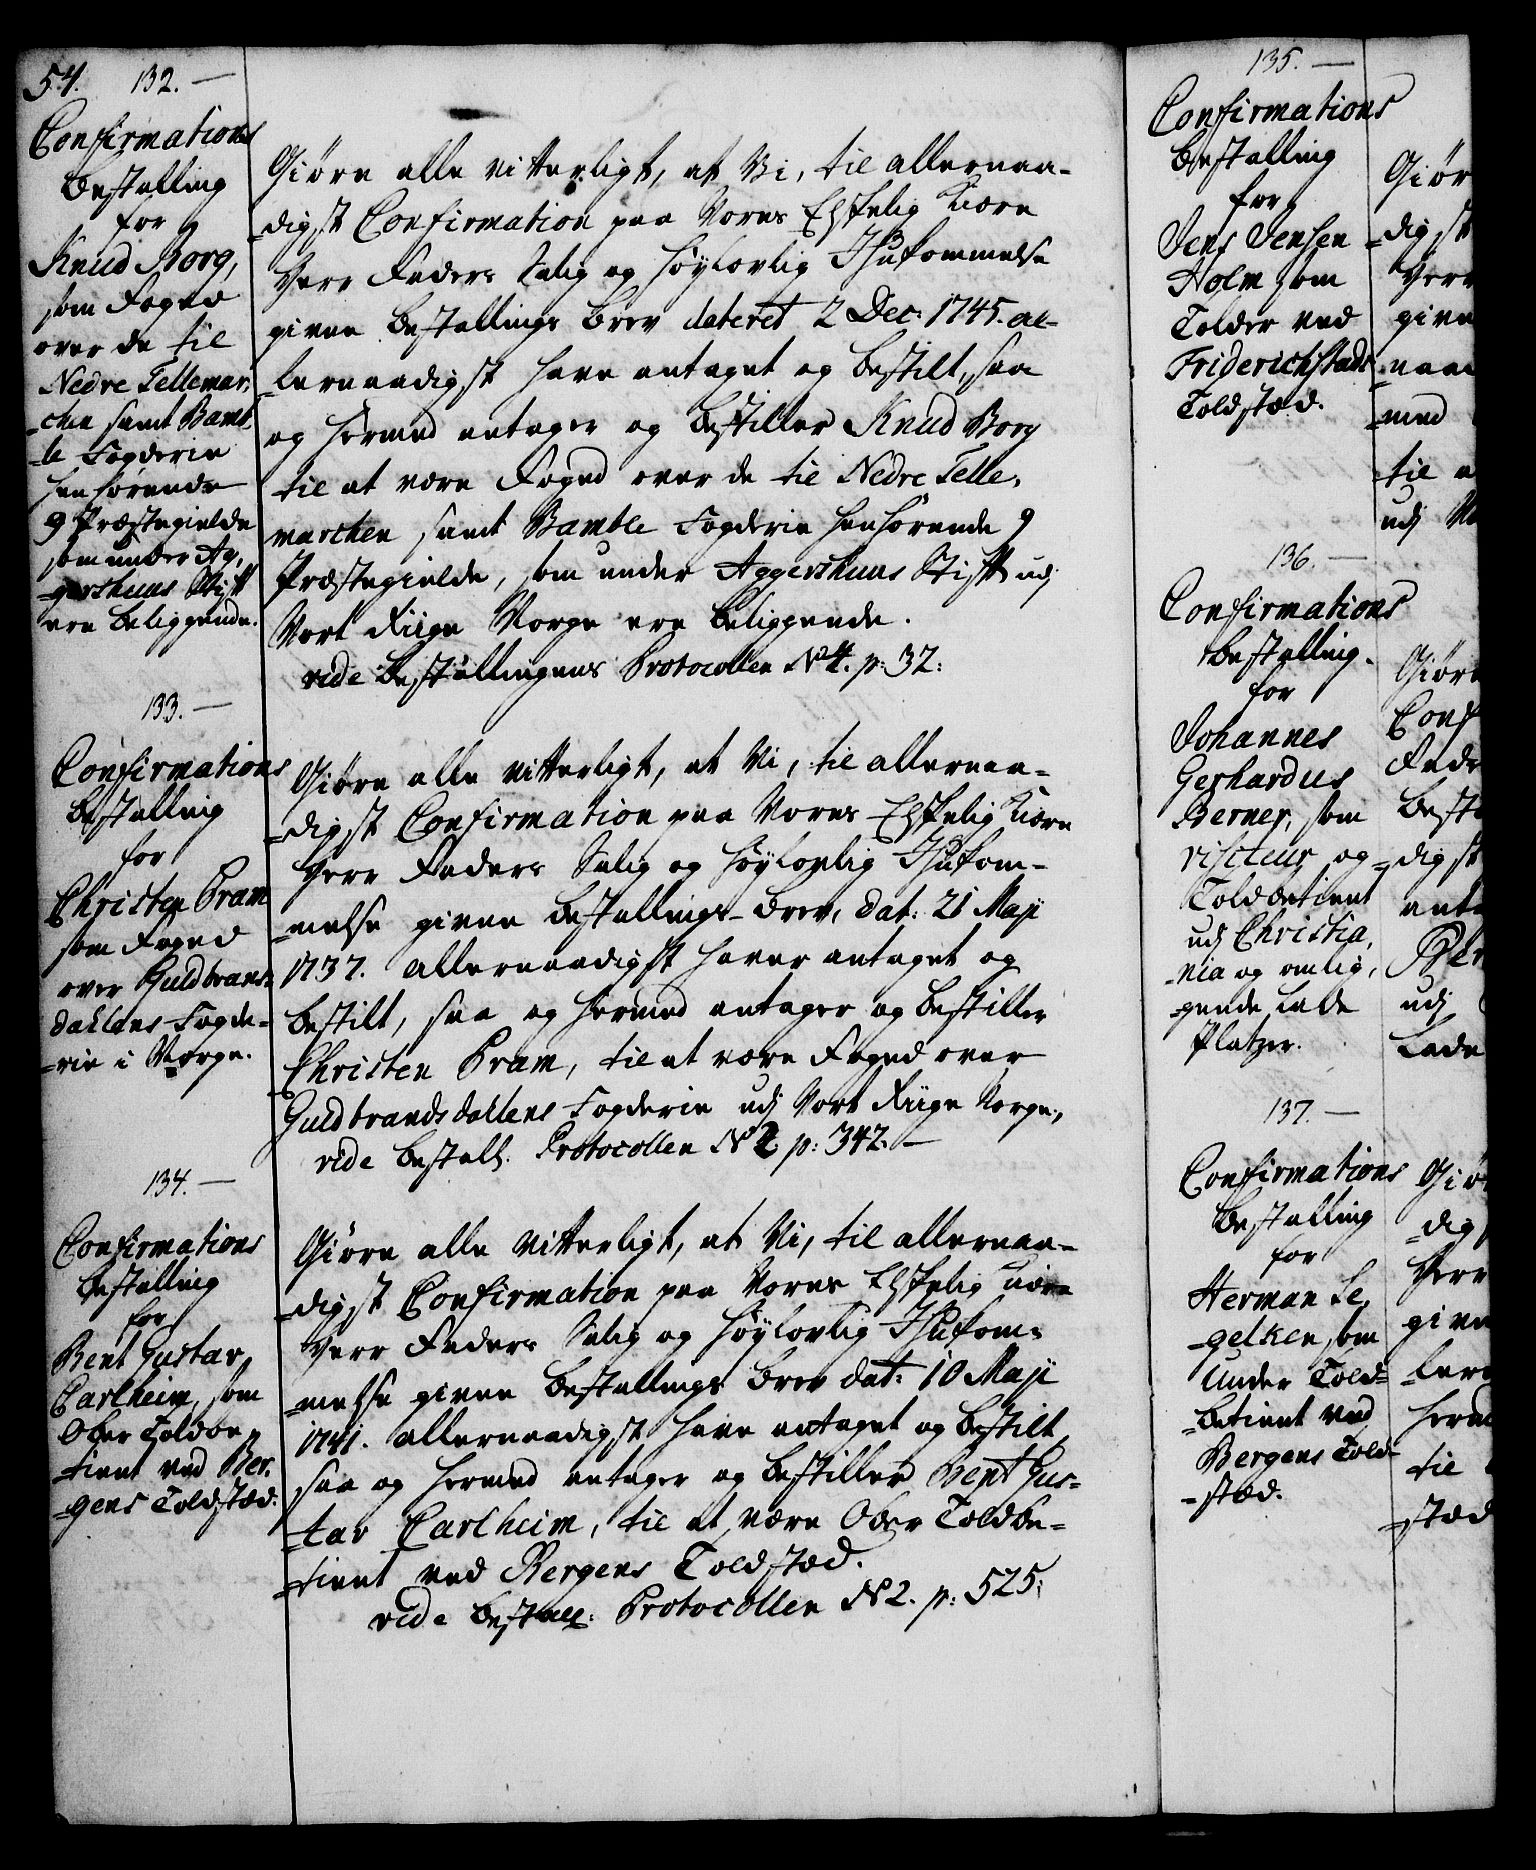 54. 132. —
Confirmations
Bestalling
for
Knud Borg,
som Foged
over de til
Nedre Tellemar,
-chen samt Bamb
-le Fogderie
henhørende
9 Præstegielde
som under Ag,
-gershuus Stift
ere beliggende.
Giøre alle vitterligt, at Vi, til allernaa-
-digst Confirmation paa Vores Elskelig Kiære
Herr Faders Salig og Høylovlig Ihukommelse
given Bestallings Brev dateret 2 Dec: 1745. al-
-lernaadigst have antaget og bestilt, saa
og hermed antager og bestiller Knud Borg
til at være Foged over de til Nedre Telle,
marchen samt Bamble Fogderie henhørende 9
Præstegielde, som under Aggershuus Stift udj
Vort Riige Norge ere beliggende.
vide Bestallingens Protocollen N 4. p: 32:
133. —
Confirmations
Bestalling
for
Christen Pram
som Foged
over Guldbrans-
dahlens Fogde-
-rie i Norge.
Giøre alle vitterligt, at Vi, til allernaa-
-digst Confirmation paa Vores Elskelig Kiære
Herr Faders Salig og Høylovlig Ihukom-
-melse given Bestallings-Brev, dat: 21 Maji
1737. allernaadigst haver antaget og
bestilt, saa og hermed antager og bestiller
Christen Pram, til at være Foged over
Guldbrandsdahlens Fogderie udj Vort Riige Norge,
vide Bestall. Protocollen N 2. p: 342. —
134. —
Confirmations
Bestalling
for
Bent Gustav
Carlheim, som
Ober Toldbe
-tient ved Ber,
-gens Toldstæd.
Giøre alle vitterligt, at Vi, til allernaa-
-digst Confirmation paa Vores Elskelig Kiære
Herr Faders Salig og Høylovlig Ihukom-
-melse given Bestallings Brev dat: 10 Maji
1741. allernaadigst have antaget og bestilt,
saa og hermed antager og bestiller Bent Gus-
-tav Carlheim, til at være Ober Toldbe-
-tient ved Bergens Toldstæd.
vide Bestall: Protocollen N 2. p: 525:
135. —
Confirmations
Bestalling
for
Jens Jensen
Holm som
Tolder ved
Friderichstads
Toldstæd.
Giør
-digst
Herr
give
-naa
-med
til a
udj No
136. —
Confirmations
Bestalling.
for
Johannes
Gerhardus
Berner, som
visiteur og
Toldbetient
udj Christia,
-nia og omlig,
-gende Lade
Platzer.
Giøre
Conf
Fade
Besta
-digst
anta
Ber
udj
Lade
137. —
Confirmations
Bestalling
for
Herman Le,
-gelken, som
Under Told-
-betient ved
Bergens Told-
-stæd.
Giør
-dig
Herr
give
-lern
herme
til
-stæd